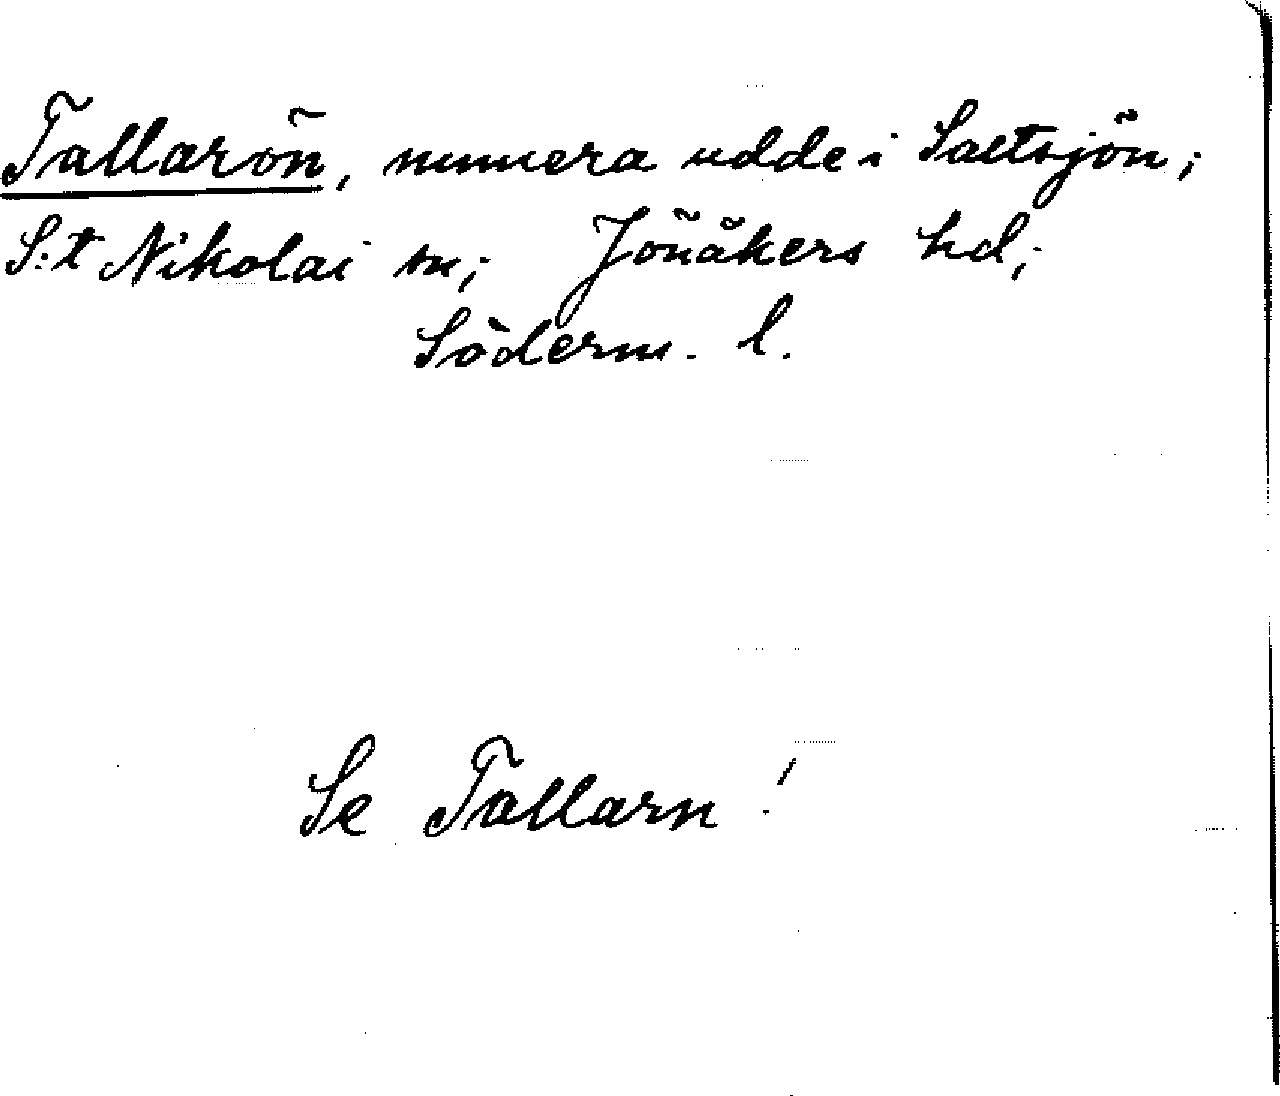 Tallarön, numera udde i Saltsjön;
S:t Nikolai sn; Jönåkers hd;
Söderm. l.
Se Tallarn!